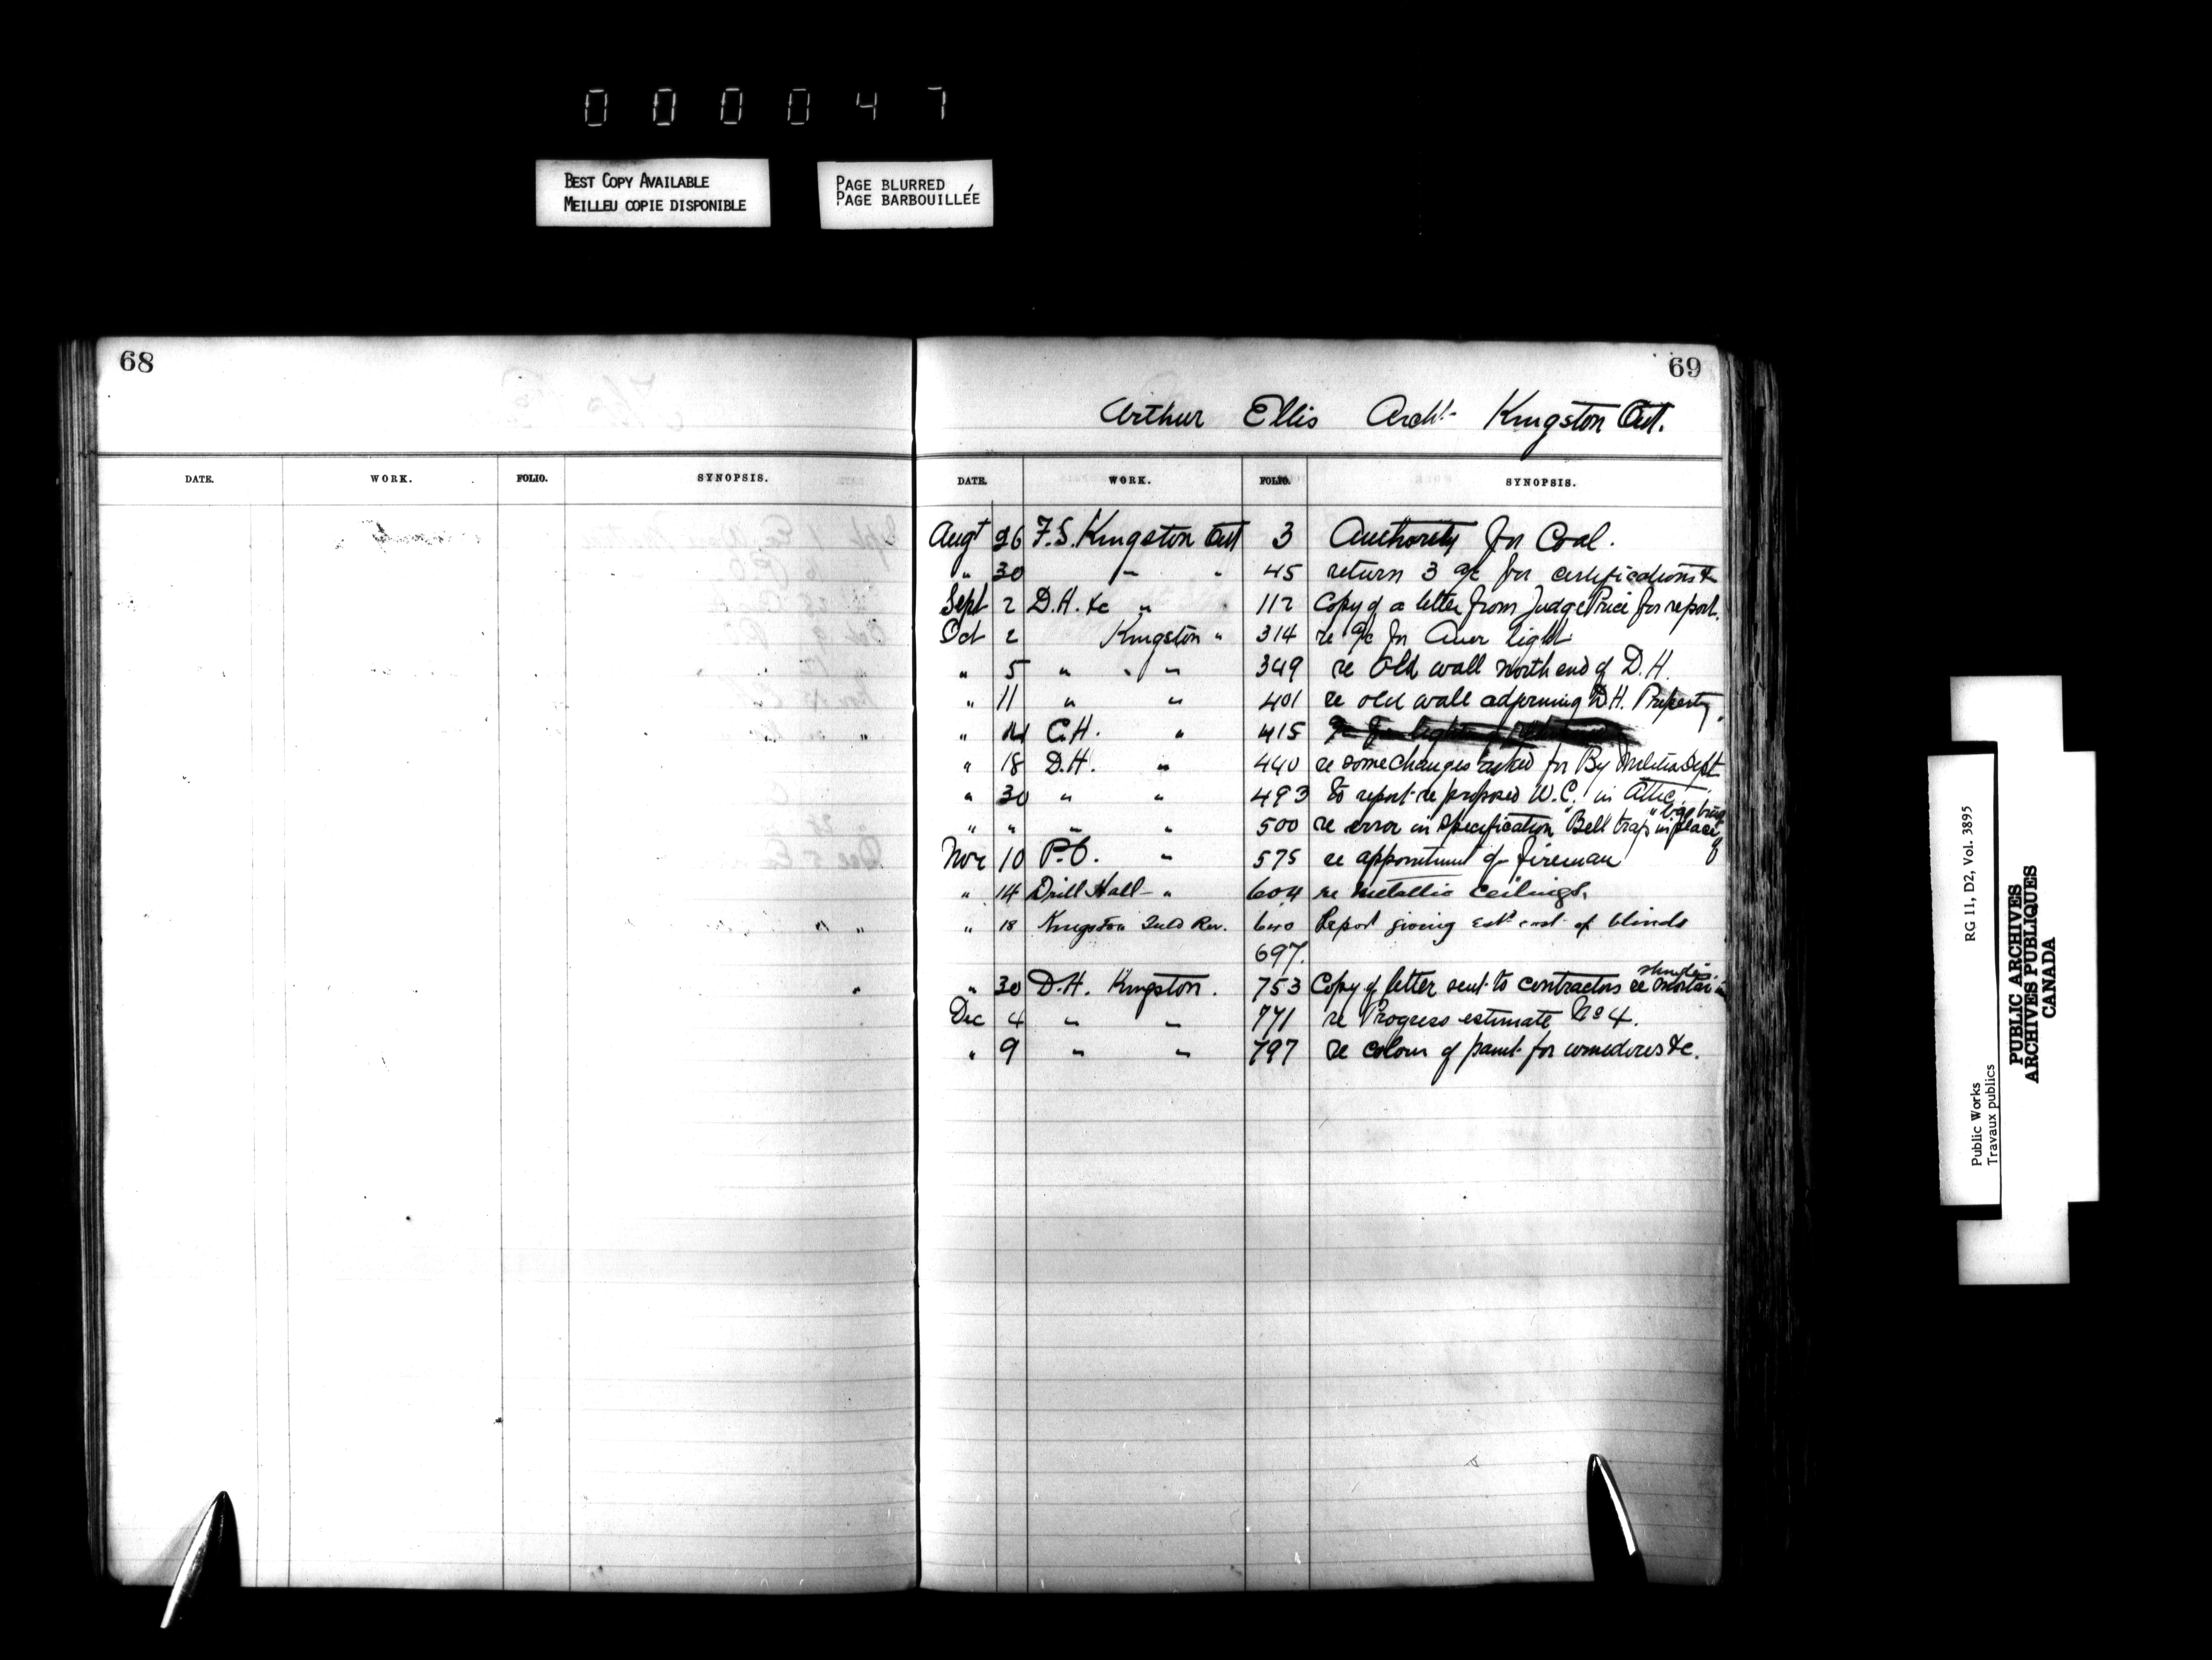 0 0 0 0 4 7
BEST COPY AVAILABLE
MEILLEU COPIE DISPONIBLE
PAGE BLURRED
PAGE BARBOUILLÉE
68
DATE. WORK. FOLIO. SYNOPSIS.
69
Arthur Ellis Archt. Kingston Ont.
DATE. WORK. FOLIO. SYNOPSIS.
Augt 26 F.S. Kingston Ont 3 Authority for Coal.
" 30 " " 45 return 3 a/c for certifications &
Sept 2 D.H. &c " 112 Copy of a letter from Judge Price for report.
Oct 2 Kingston " 314 re a/c for Auer light
" 5 " " " 349 re Old wall north end of D.H.
" 11 " " 401 re old wall adjoining D.H. Property
" 14 C.H. " 415
" 18 D.H. " 440 re some changes asked for By Militia Dept
" 30 " " 493 to report re proposed W.C. in attic
" " " " 500 re error in specification Bell trap in place of
Nov 10 P.O. " 575 re appointment of fireman
" 14 Drill Hall " 604 re metallic ceilings.
" 18 Kingston Inld Rev. 640 Report giving estd cost of blinds
697.
" 30 D.H. Kingston. 753 Copy of letter sent to contractors re mortar
Dec 4 " " 771 re Progress estimate No 4.
" 9 " " 797 re colour of paint for &c.
Public Works
Travaux publics
RG 11, D2, Vol. 3895
PUBLIC ARCHIVES
ARCHIVES PUBLIQUES
CANADA